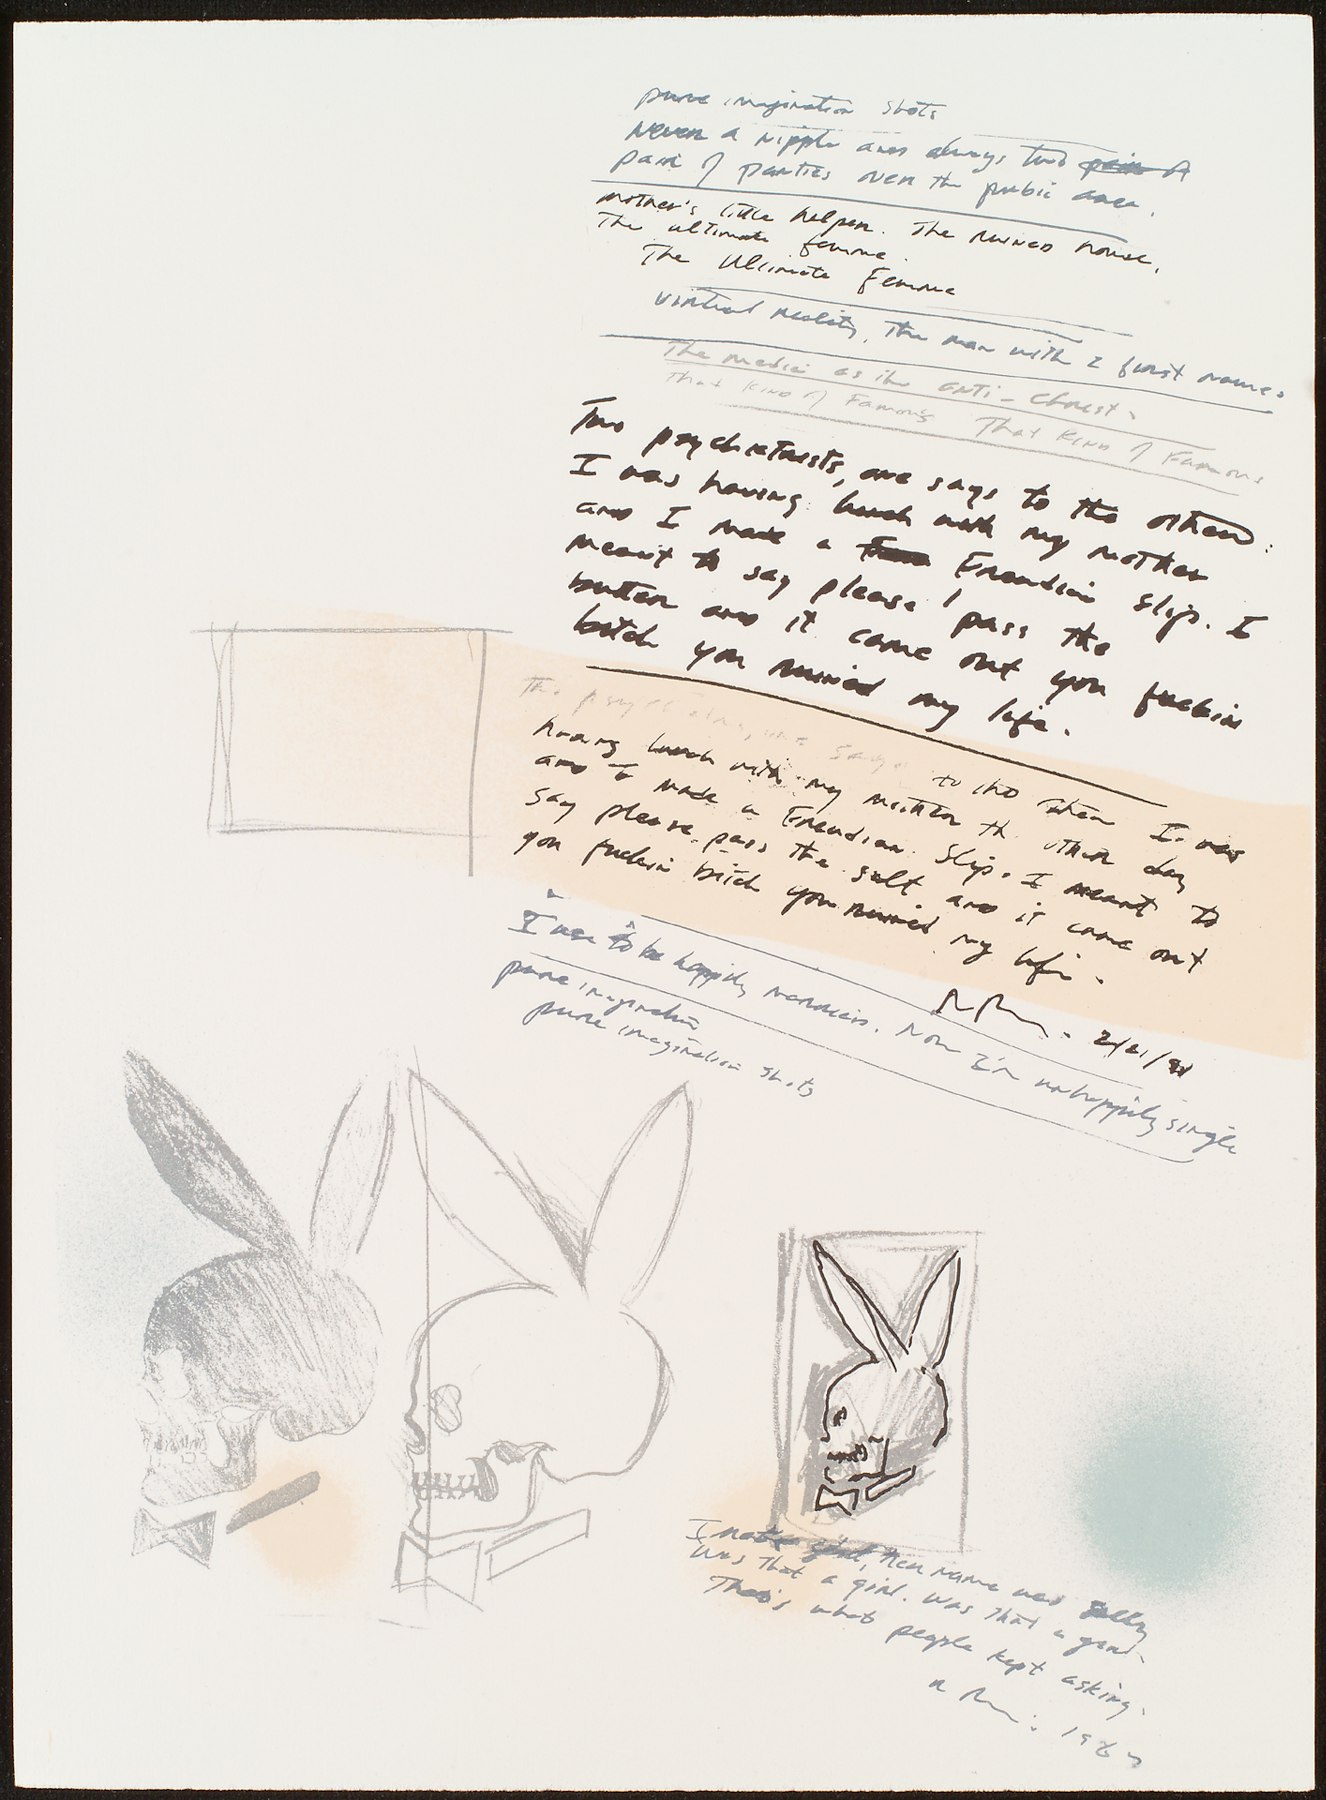 pure imagination shots
Never a nipple and always two pair of
pair of panties over the pubic area.
mother's little helper. The ruined house.
The ultimate femme.
The Ultimate Femme
virtual reality. The man with 2 first names.
The media as the anti-Christ.
That Kind of Famous That Kind of Famous
Two psychiatrists, one says to the other:
I was having lunch with my mother
and I made a Freudian slip. I
meant to say please pass the
butter and it came out you fuckin
bitch you ruined my life.
Two psychiatrists, one says to the other I was
having lunch with my mother the other day
and I made a Freudian Slip. I meant to
say please pass the salt and it came out
you fuckin bitch you ruined my life.
2/21/91
I use to be happily married. Now I'm unhappily single
pure imagination
pure imagination shots
I met a girl, her name was Sally
Was that a girl. Was that a girl.
That's what people kept asking.